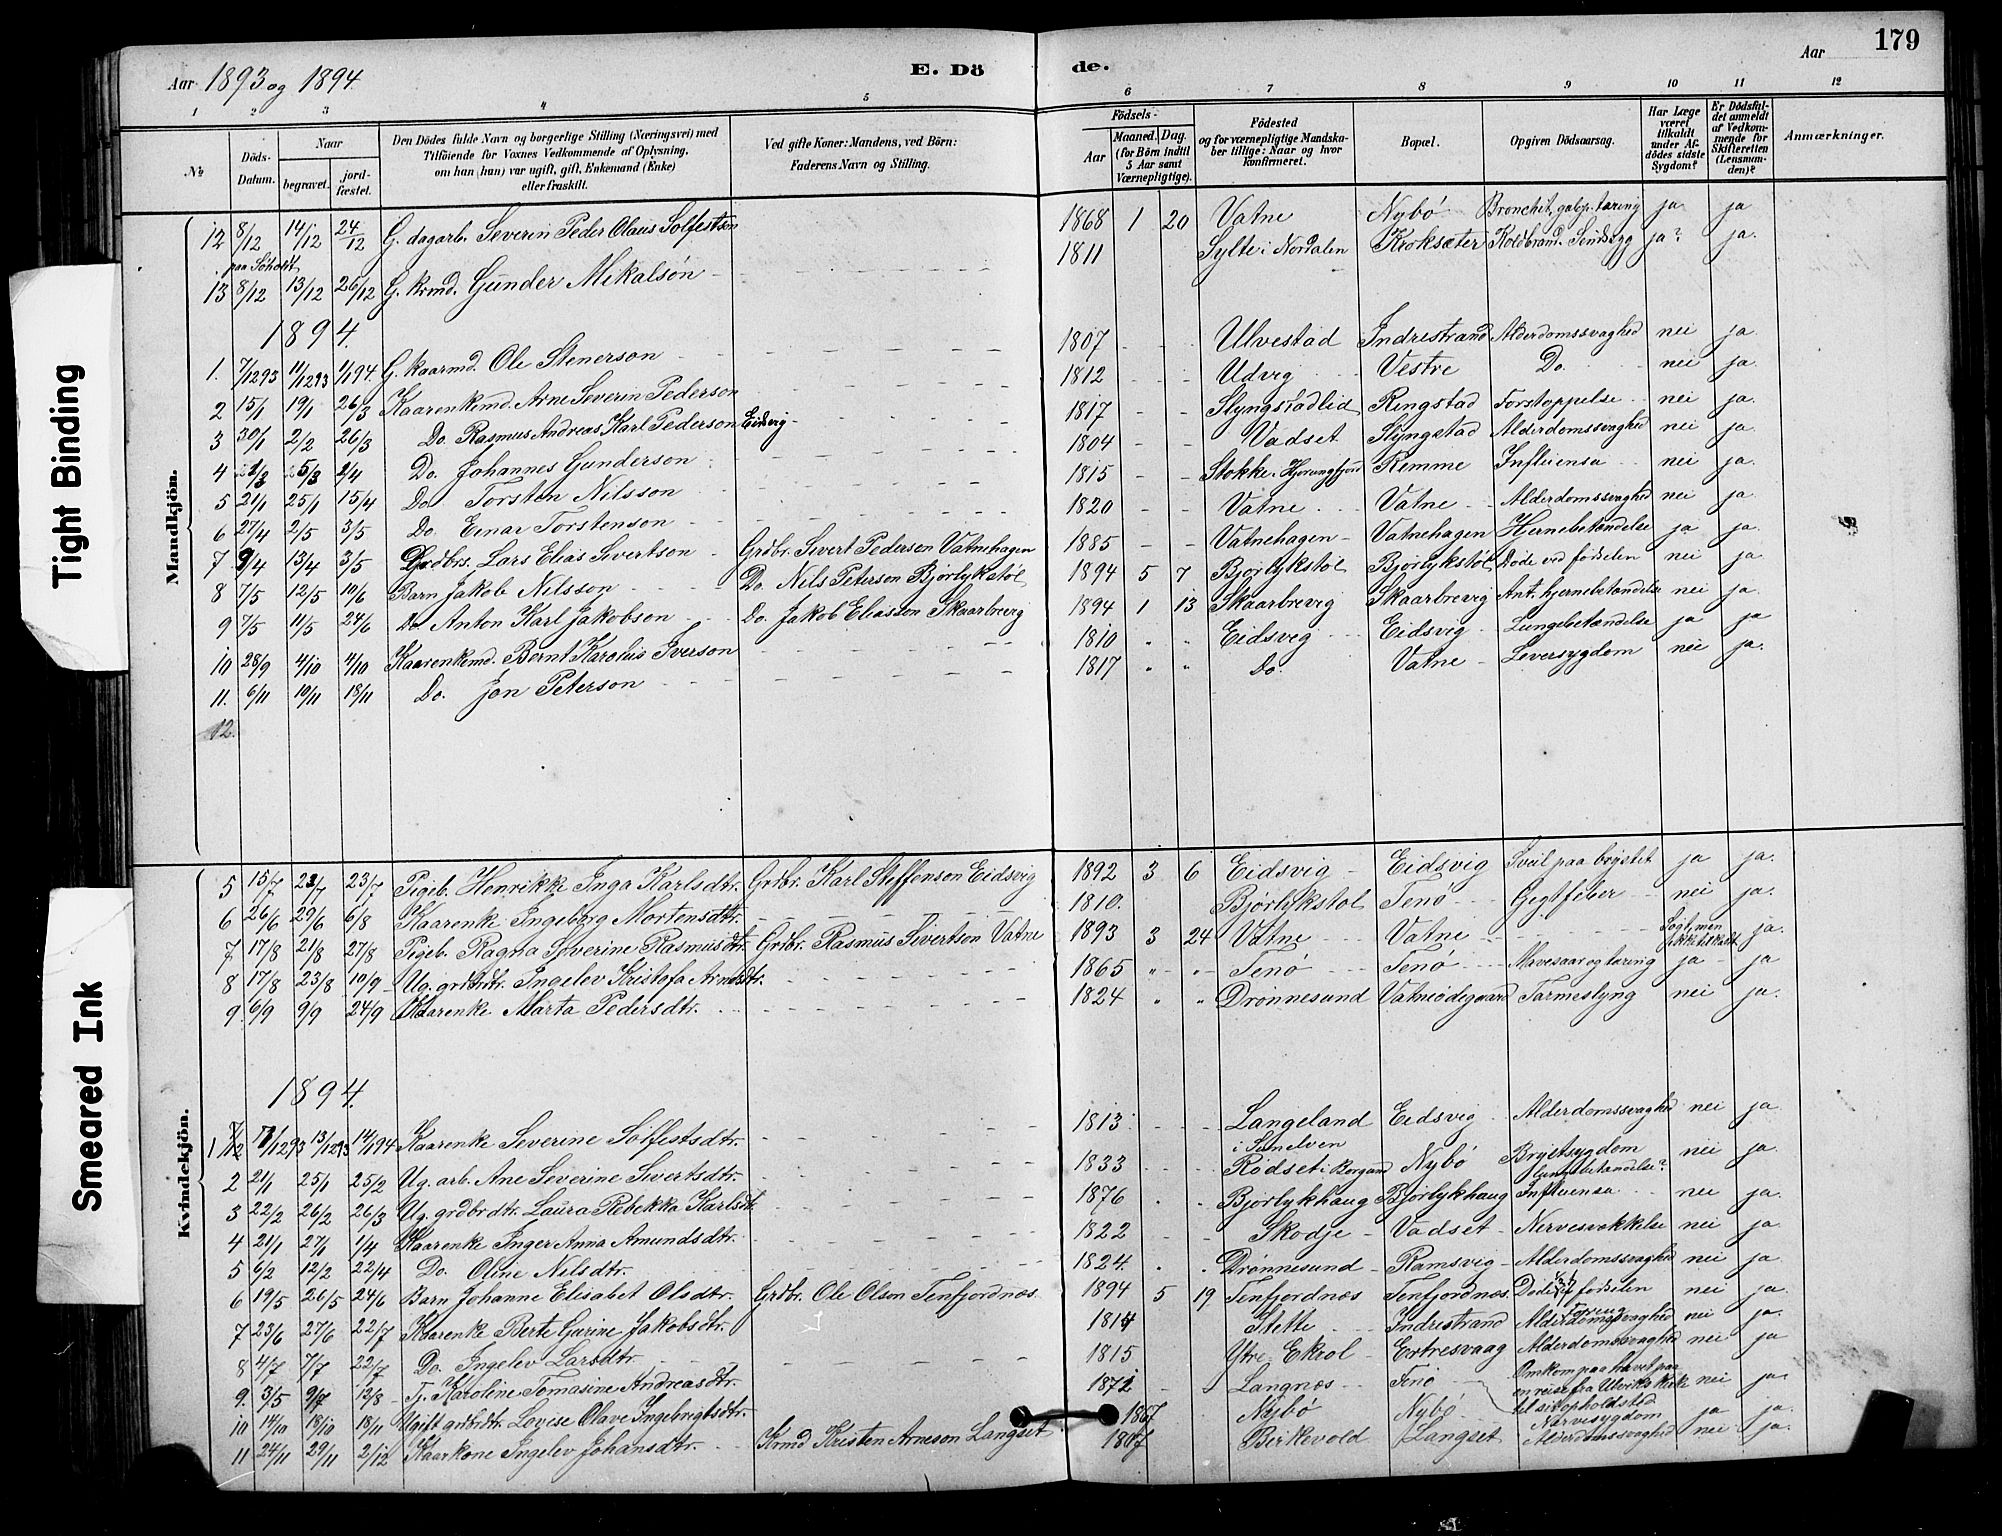 Tight Binding
Smeared Ink
Aar 1893 og 1894.
E. Dö
de.
Aar
179
1 2 3 4 5 6 7 8 9 10 11 12
№ Döds-Datum. Naar begravet. jord-fæstet. Den Dödes fulde Navn og borgerlige Stilling (Næringsvei) med Tilföiende for Voxnes Vedkommende af Oplysning, om han (hun) var ugift, gift, Enkemand (Enke) eller fraskilt. Ved gifte Koner: Mandens, ved Börn: Faderens Navn og Stilling. Födsels- Aar Maaned. Dag. (for Börn indtil 5 Aar samt Værnepligtige). Födested og for værnepligtige Mandskaber tillige: Naar og hvor konfirmeret. Bopæl. Opgiven Dödsaarsag. Har Læge været tilkaldt under Afdödes sidste Sygdom? Er Dödsfaldet anmeldt af Vedkommende for Skifteretten (Lensmanden)? Anmærkninger.
Mandkjön.
12 8/12 14/12 24/12 G. dagarb. Severin Peder Olaus Solfestsøn 1868 1 20 Vatne Nybö Bronchit, galop. tæring ja ja
paa Søholt
13 8/12 13/12 26/12 G. krmd. Gunder Mikalsön 1811 Sylte i Nordalen Kroksæter Koldbrand. Sindssyg ja? ja.
1894.
1. 7/12 93 11/12 93 1/1 94. G. kaarmd. Ole Stenerson 1807 Ulvestad Indrestrand Alderdomssvaghed nei ja
2 15/1 19/1 26/3 Kaarenkemd. Arne Severin Pederson 1812 Udvig Vestre Do. nei ja.
3 30/1 2/2 26/3 Do. Rasmus Andreas Karl Pederson Eidsvig 1817 Slyngstadlid Ringstad Forstoppelse nei ja.
4 5/3 2/4 Do. Johannes Gunderson 1804 Vadset Slyngstad Alderdomssvaghed nei ja.
5 21/1 25/1 15/4 Do Torsten Nilsson 1815 Stokke i Hjorungfjord Remme Influensa nei ja.
6 27/4 2/5 3/5 Do. Einar Torstenson 1820 Vatne Vatne Alderdomssvaghed nei ja
7 9/4 13/4 3/5 Grdbrs. Lars Elias Sivertson Grdbr. Sivert Pederson Vatnehagen 1885 Vatnehagen Vatnehagen Hjernebetændelse ja ja.
8 7/5 12/5 10/6 Barn Jakob Nilsson Do. Nils Peterson Bjørlykstøl 1894 5 7 Bjorlykstöl Bjorlykstöl Döde ved födselen nei ja.
9 7/5 11/5 24/6 Do Anton Karl Jakobson Do. Jakob Eliasson Skaarbrevig 1894 1 13 Skaarbrevig Skaarbrevig Ant. hjernebetændelse nei ja.
10 28/9 4/10 4/10 Kaarenkemd. Bernt Karolus Iverson 1810 Eidsvig Eidsvig Lungebetændelse ja ja
11. 6/11 10/11 18/11 Do. Jon Peterson 1817 Do. Vatne Leversygdom nei ja.
12.
Kvindekjön.
5 15/7 23/7 23/7 Pigeb. Henrikke Inga Karlsdtr. Grdbr. Karl Steffenson Eidsvig 1892 3 6 Eidsvig Eidsvig Sveil paa brystet ja ja.
6 26/6 29/6 6/8 Kaarenke Ingeborg Mortensdtr. 1810. Bjørlykstol Tenø Gegtfeber nei ja.
7 17/8 21/8 27/8 Pigeb. Ragna Severine Rasmusdtr. Grdbr. Rasmus Sivertson Vatne 1893 3 24 Vatne Vatne Søgt, men ikke tilstede ja.
8 17/8 23/8 10/9 Ug. grdbrdtr. Ingelev Kristofa Arnesdtr. 1865 Tenø Tenø Mavesaar og tæring ja ja
9. 6/9 9/9 24/9 Kaarenke. Marta Pedersdtr. 1824 Drønnesund Vatneødegaard Tarmeslyng nei ja.
1894.
1 7/12 93 13/12 93 14/1 94 Kaarenke Severine Solfestsdtr. 1813. Langeland i Sunelven Eidsvig Alderdomssvaghed nei ja
2 21/1 25/1 25/2 Ug. arb. Ane Severine Sivertsdtr. 1833 Rødset i Borgund Nybö Brystsygdom lungebetændelse? nei ja.
3 22/2 26/2 26/3 Ug. grdbrdtr. Laura Rebekka Karlsdtr. 1876 Bjorlykhaug Bjorlykhaug Influensa nei ja.
4 21/1 27/1 1/4 Kaarenke Inger Anna Amundsdtr. 1822 Skodje Vadset Nervesvækkelse nei ja.
5 6/2 12/2 22/4 Do. Oline Nilsdtr. 1824. Drønnesund Ramsvig Alderdomssvaghed nei ja
6 19/5 26/5 24/6 Barn Johanne Elisabet Olsdtr. Grdbr. Ole Olson Tenfjordnæs. 1894 5 19 Tenfjordnæs Tenfjordnæs. Døde ved fødselen nei ja.
7 23/6 27/6 22/7 Kaarenke Berte Gurine Jakobsdtr. 1814 Stette Indrestrand Alderdomssvaghed nei ja.
8 4/7 7/7 22/7 Do. Ingelev Larsdtr. 1815 Ytre Ekrol Ertresvaag Alderdomssvaghed nei ja
9. 3/5 9/7 13/8 Tj. Karoline Tomasine Andreasdtr. 1872 Langnæs Tenø Omkom paa havet paa en reise fra Ulviks kirke til sit opholdsted nei ja.
10 14/10 18/10 18/11 Ugift grdbrdtr. Lovise Olave Ingebregtsdtr. 1867 Nybö Nybö Nervesygdom ja ja.
11 24/11 29/11 2/12 Kaarkone Ingelev Johansdtr. Krmd Kristen Arneson Langset 1807 Birkevold Langset Alderdomssvaghed nei ja.